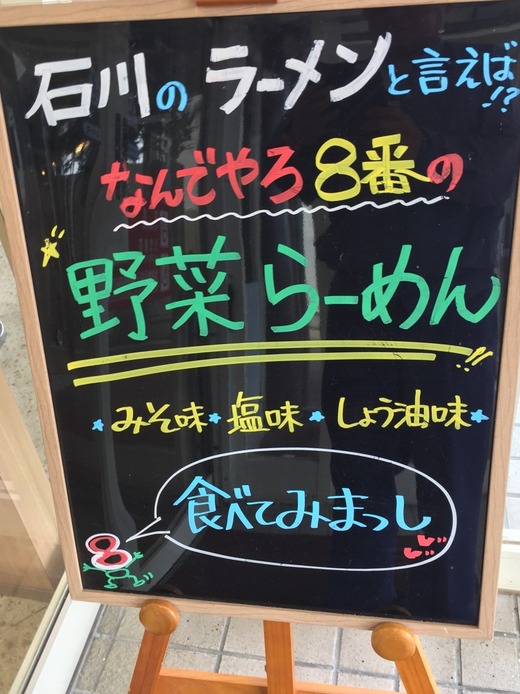 石川のラーメンと言えば!?
なんでやろ8番の
野菜らーめん!!
みそ味 塩味 しょう油味
食べてみまっし
8